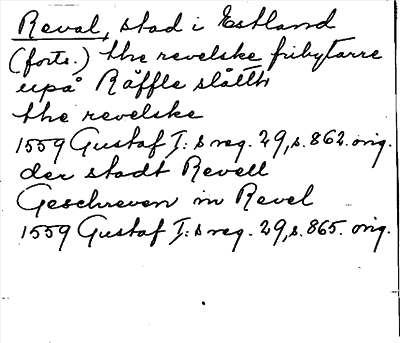 Reval, stad i Estland
(forts.) the revelske fribytarre
upå Räffle slåtth
the revelske
1559 Gustaf I:s reg. 29, s. 862. orig.
der stadt Revell
Geschreven in Revel
1559 Gustaf I:s reg. 29, s. 865. orig.